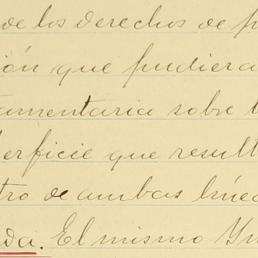 de los derechos de p
ión que pudiera
amentaria sobre l
erficie que result
tro de ambas líne
da. El mismo Yn